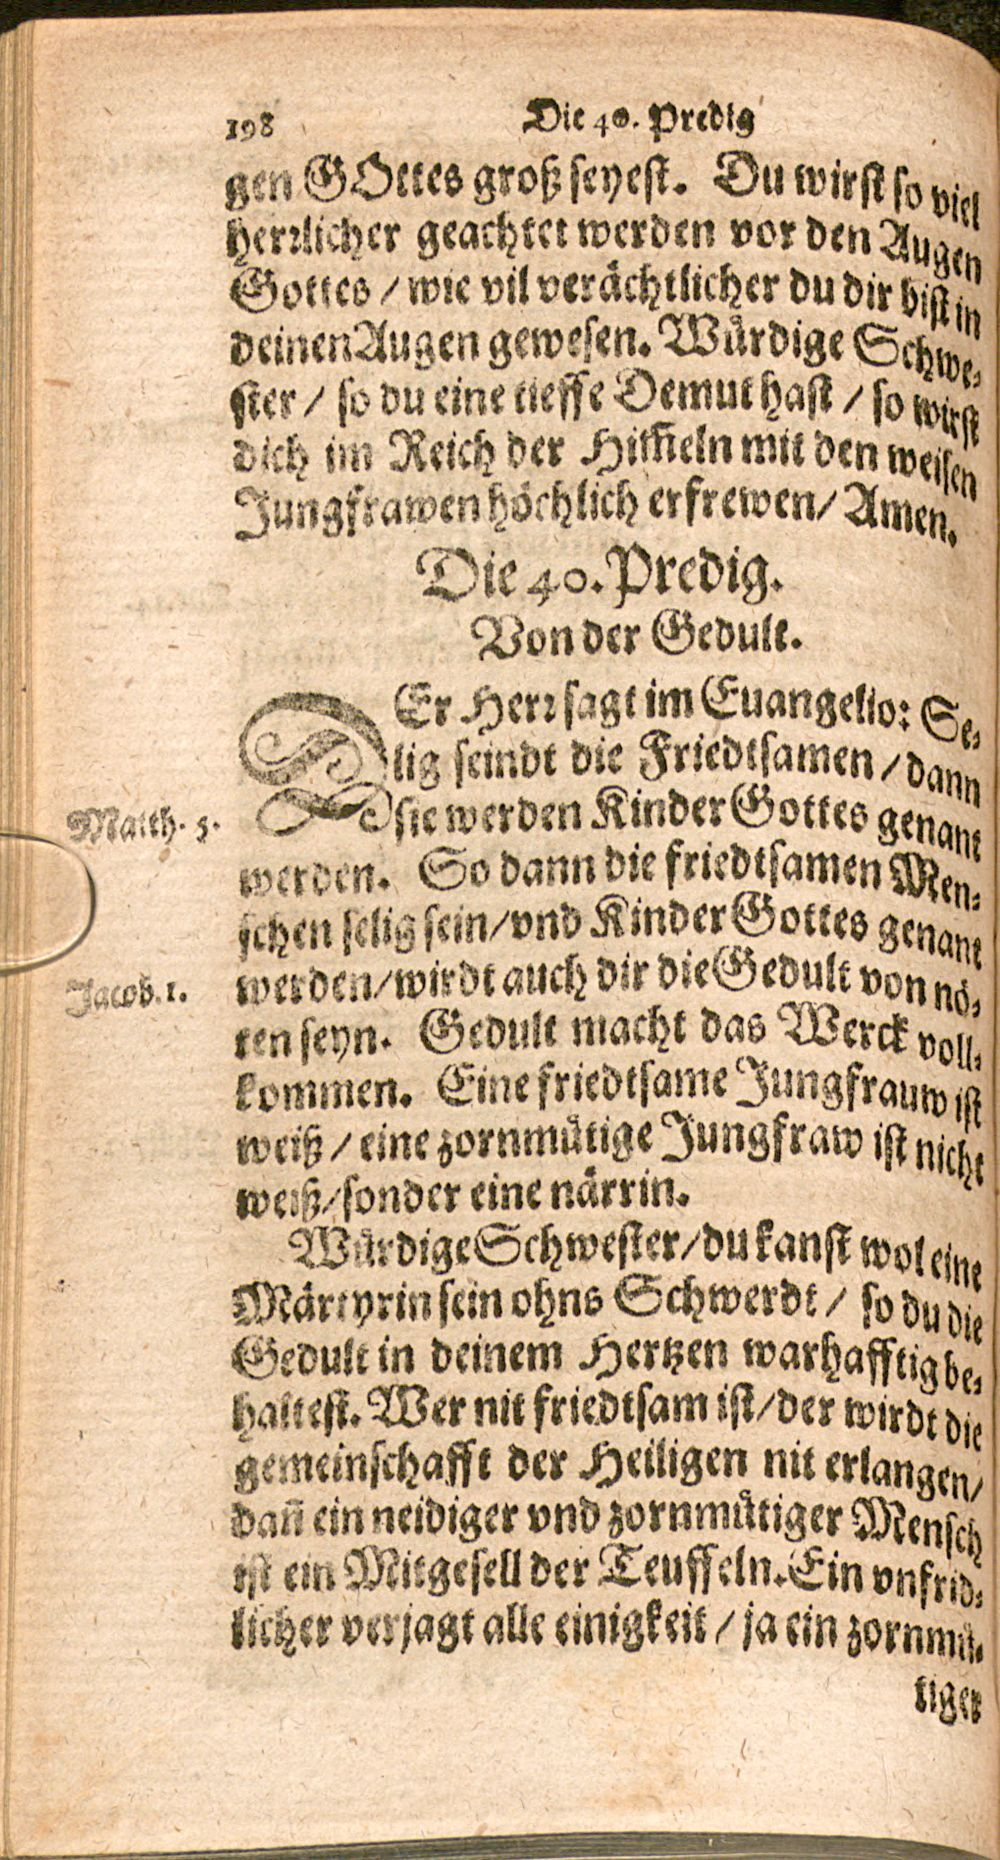 198 Die 40. Predig
gen GOttes groß seyest. Du wirst so viel
herrlicher geachtet werden vor den Augen
Gottes / wie vil verächtlicher du dir bist in
deinen Augen gewesen. Würdige Schwe-
ster / so du eine tieffe Demut hast / so wirst
dich im Reich der Him̃eln mit den weisen
Jungfrawen höchlich erfrewen / Amen.
Die 40. Predig.
Von der Gedult.
DEr Herr sagt im Euangelio: Se-
lig seindt die Friedtsamen / dann
Matth. 5. sie werden Kinder Gottes genant
werden. So dann die friedtsamen Men-
schen selig sein / vnd Kinder Gottes genant
Jacob. 1. werden / wirdt auch dir die Gedult von nö-
ten seyn. Gedult macht das Werck voll-
kommen. Eine friedtsame Jungfrauw ist
weiß / eine zornmütige Jungfraw ist nicht
weiß / sonder eine närrin.
Würdige Schwester / du kanst wol eine
Märtyrin sein ohns Schwerdt / so du die
Gedult in deinem Hertzen warhafftig be-
haltest. Wer nit friedtsam ist / der wirdt die
gemeinschafft der Heiligen nit erlangen /
dañ ein neidiger vnd zornmütiger Mensch
ist ein Mitgesell der Teuffeln. Ein vnfrid-
licher verjagt alle einigkeit / ja ein zornmü-
tiger